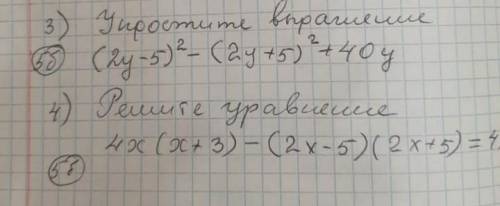 3) Упростите выражение
5б (2y-5)²-(2y+5)²+40y
4) Решите уравнение
4x(x+3)-(2x-5)(2x+5)=4
5б